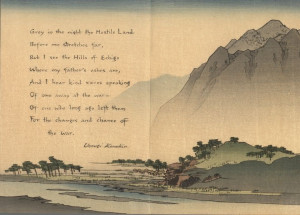 Grey is the night the Hostile Land
Before me stretches far,
But I see the Hills of Echigo
Where my father's ashes are,
And I hear kind voices speaking
Of one away at the war
Of one who long ago left them
For the changes and chances of
the war.